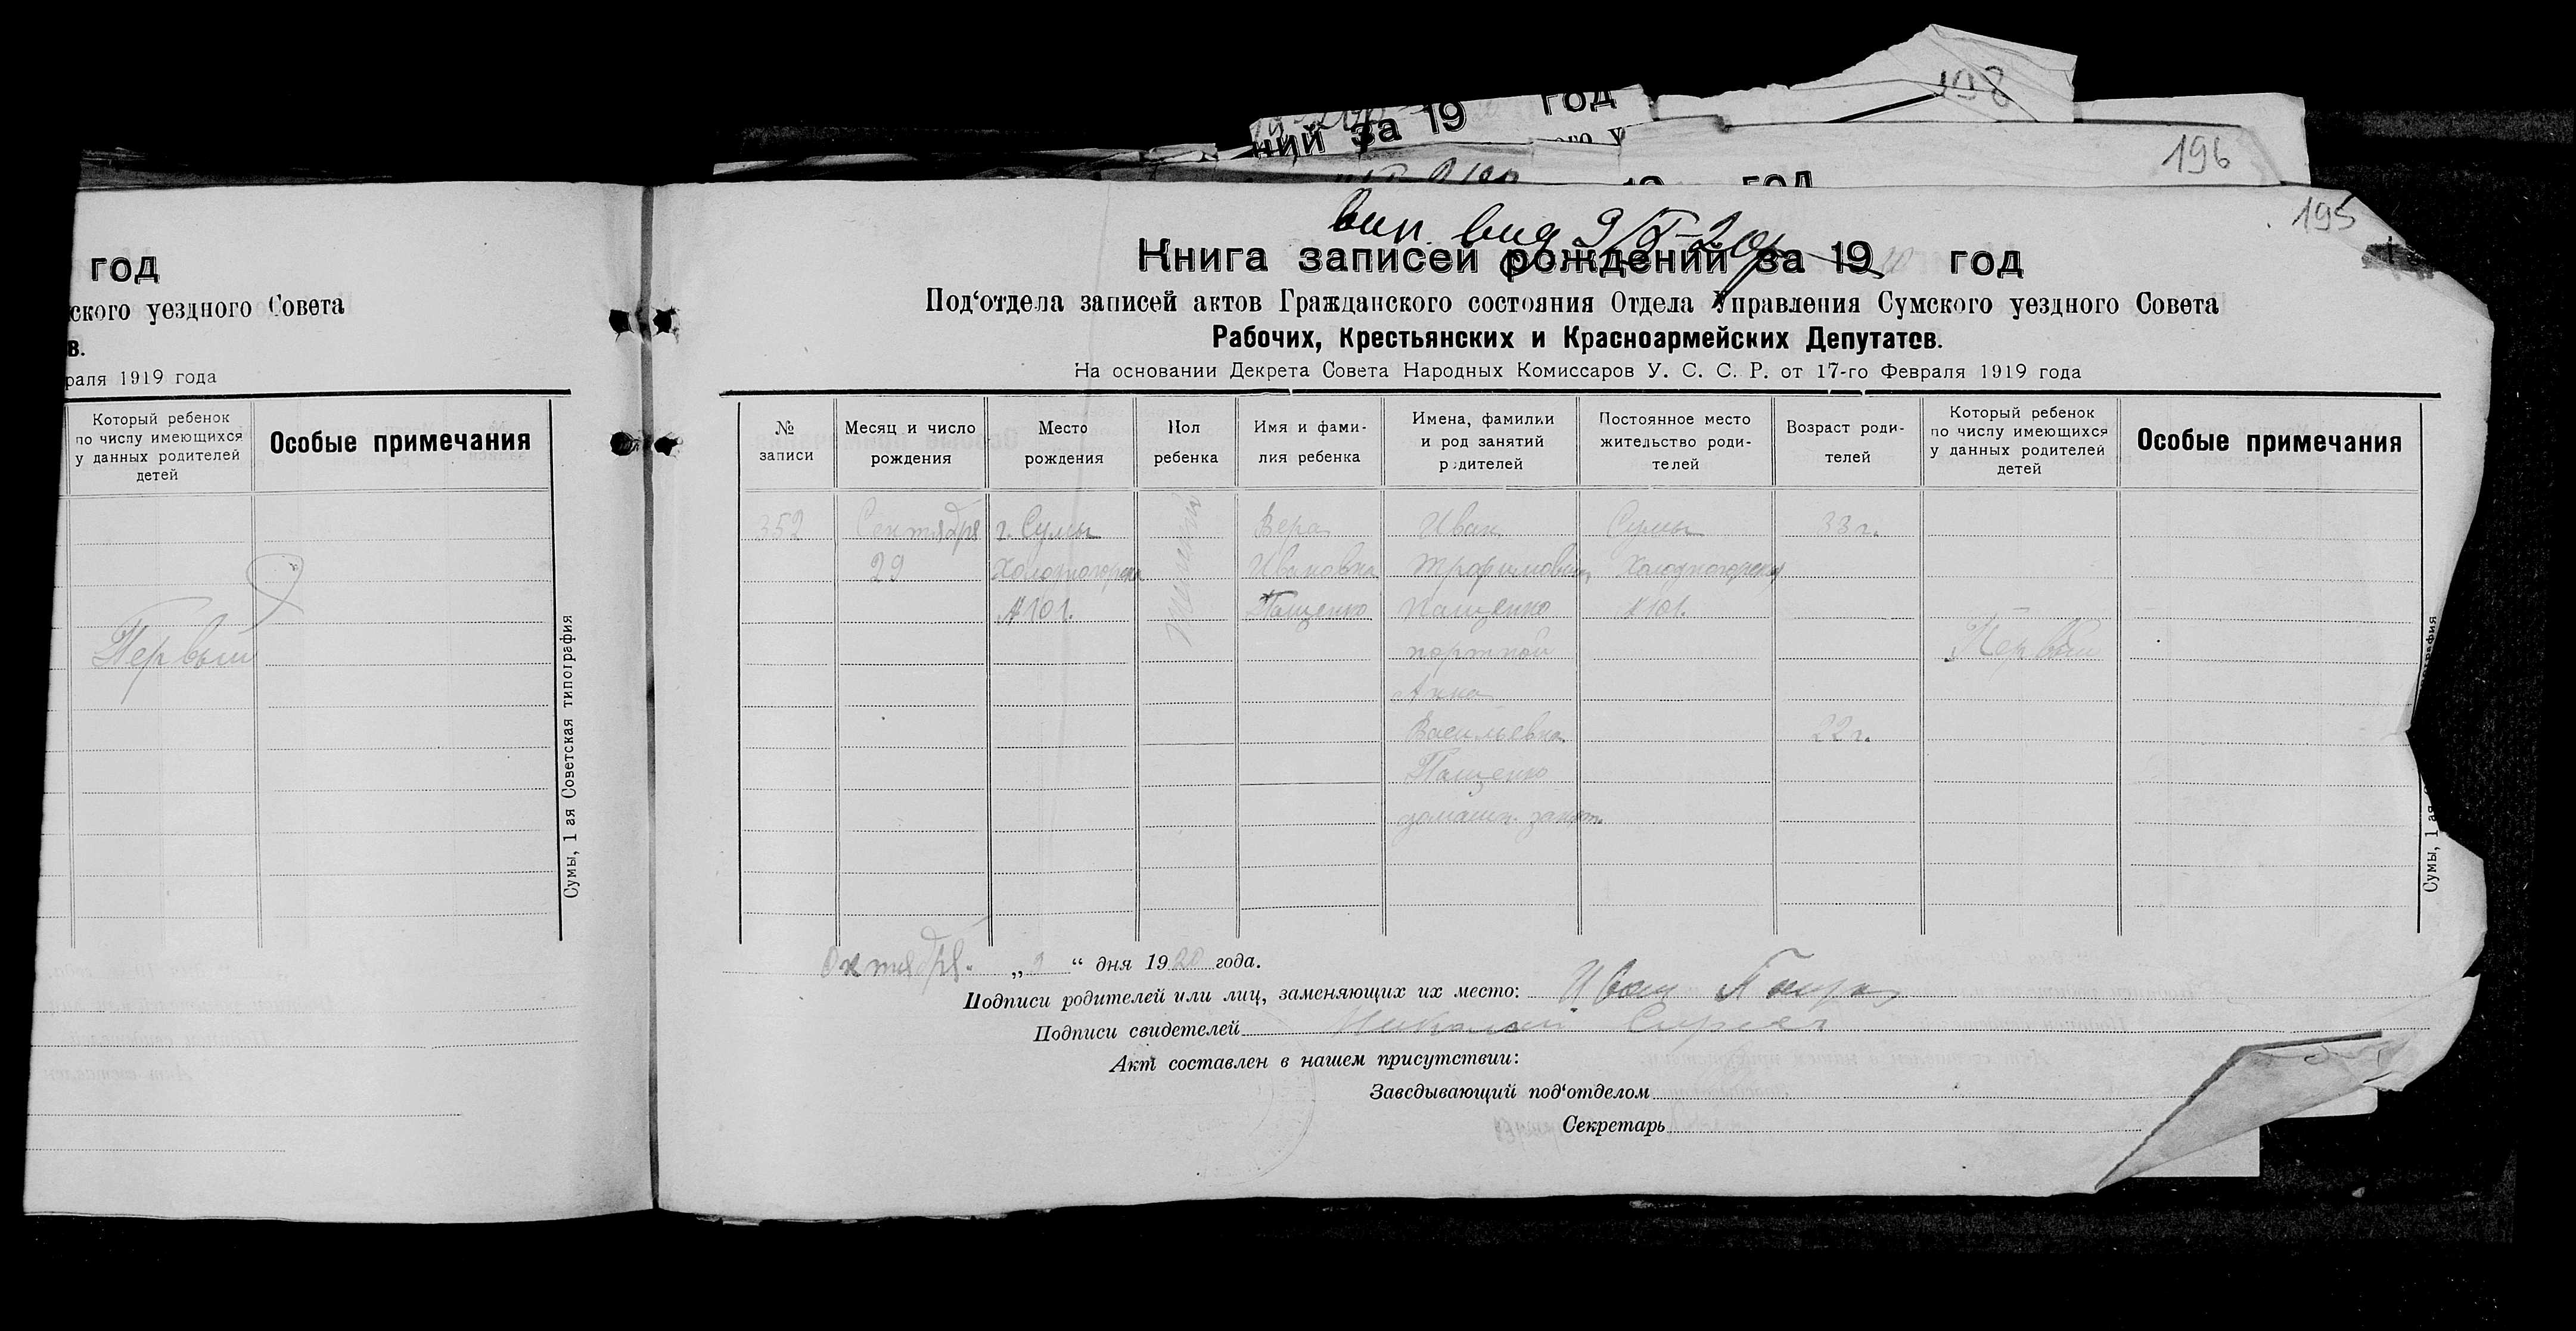 198
ний за 19 год
196
год
195
вип. вид 9/
год
ского уездного Совета
в.
раля 1919 года
Который ребенок
по числу имеющихся
у данных родителей
детей
Особые примечания
Первый
Сумы, 1 ая Советская типография
Книга записей рождений за 19 год
Под‘отдела записей актов Гражданского состояния Отдела Управления Сумского уездного Совета
Рабочих, Крестьянских и Красноармейских Депутатов.
На основании Декрета Совета Народных Комиссаров У. С. С. Р. от 17-го Февраля 1919 года
№
записи
Месяц и число
рождения
Место
рождения
Пол
ребенка
Имя и фами-
лия ребенка
Имена, фамилии
и род занятий
родителей
Постоянное место
жительство роди-
телей
Возраст роди-
телей
Который ребенок
по числу имеющихся
у данных родителей
детей
Особые примечания
352
Сентября
29
г. Сумы
Холодногорска
№ 101.
Вера
Ивановна
Пащенко
Иван
Трофимович
Пащенко
портной
Анна
Васильевна
Пащенко
домашн. занят.
Сумы
Холодногорская
№ 101.
33 г.
22 г.
Первый
Сумы, 1 ая
Октября. „2“ дня 1920 года.
Подписи родителей или лиц, заменяющих их место: Иван
Подписи свидетелей Николай
Акт составлен в нашем присутствии:
Заведывающий под‘отделом
Секретарь